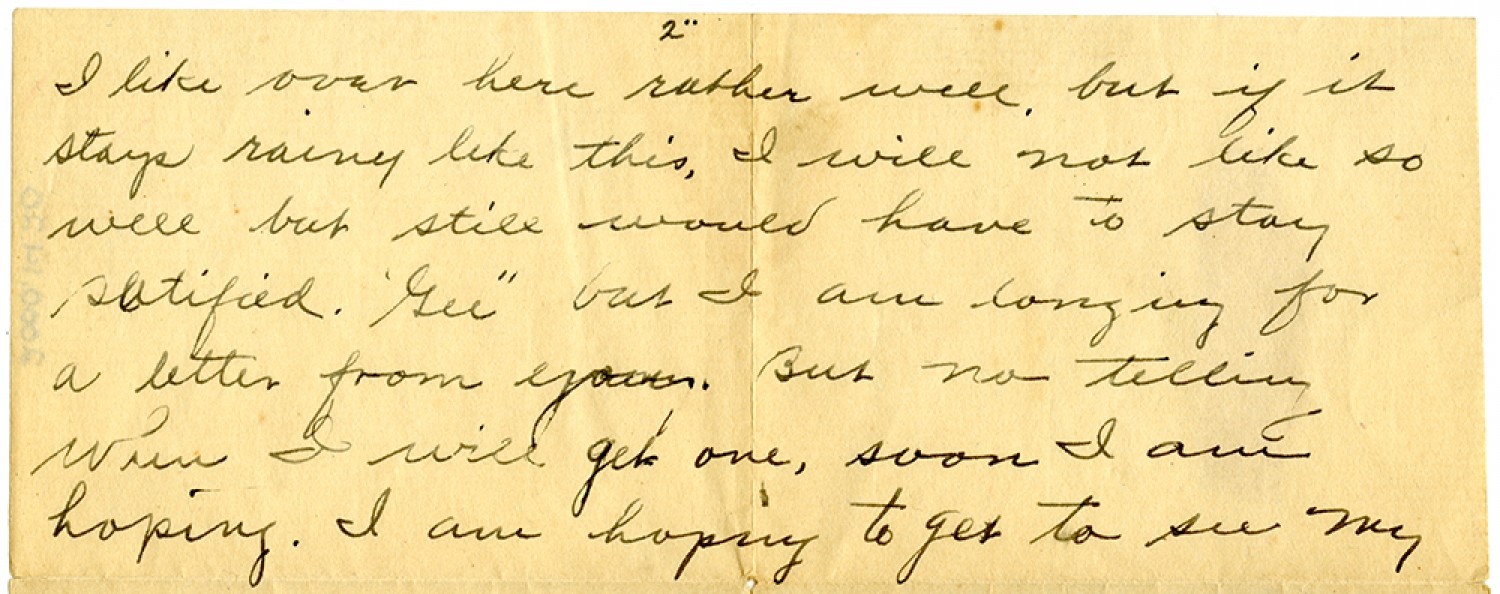 2"
I like over here rather well, but if it
stays rainey like this, I will not like so
well but still would have to stay
satified. "Gee" but I am longing for
a letter from you. But no telling
when I will get one, soon I am
hoping. I am hoping to get to see my